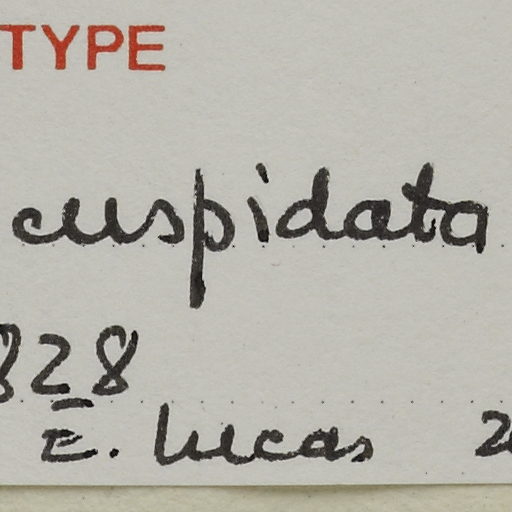 TYPE
cuspidata
828
E. Lucas 2